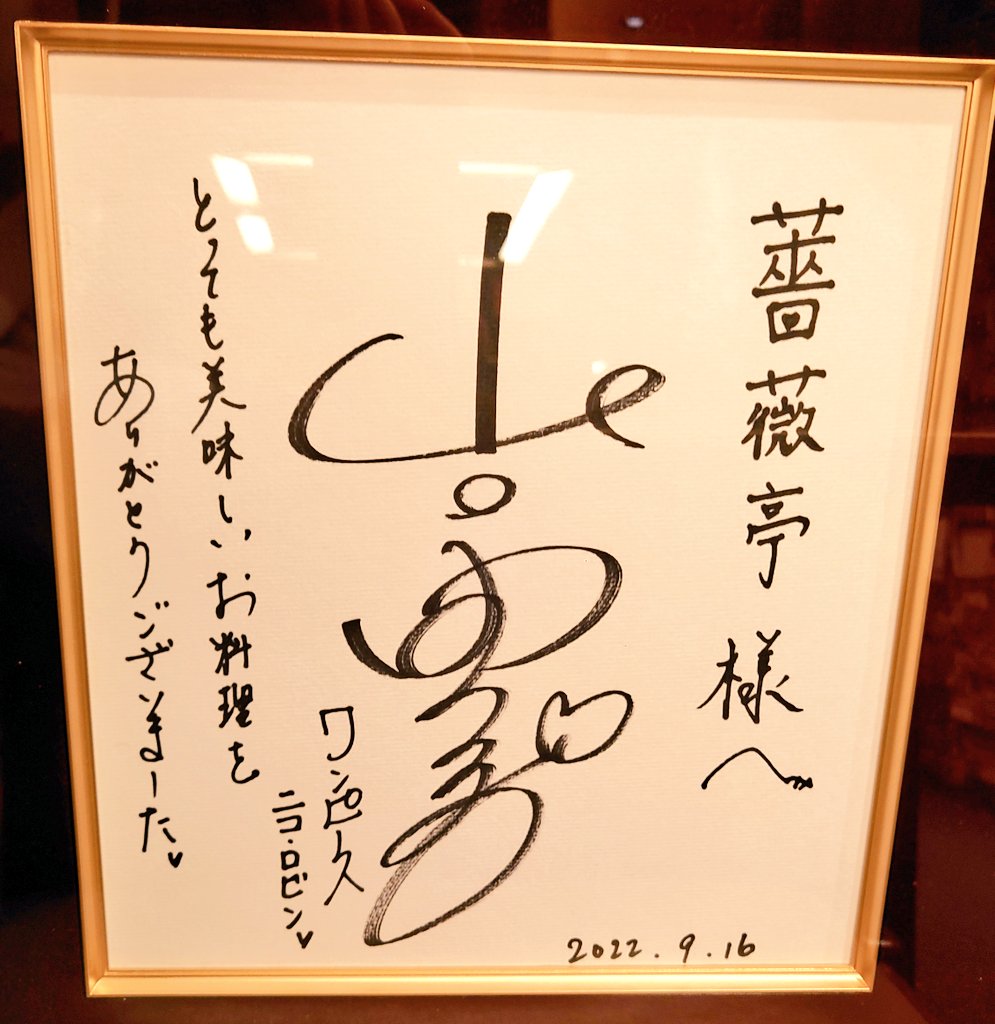 薔薇亭 様へ
山口由里子
ワンピース
ニコ・ロビン♥
とっても美味しいお料理を
ありがとうございました♥
2022.9.16